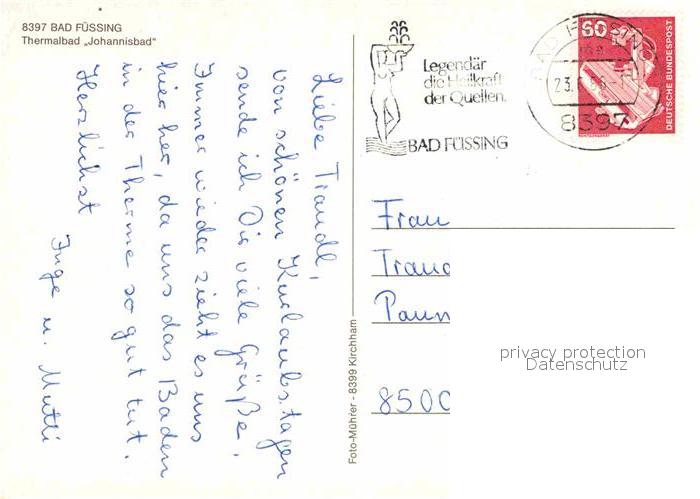 8397 BAD FÜSSING
Thermalbad „Johannisbad"
Liebe Traudl,
von schönen Kurlaubstagen
sende ich Dir viele Grüße.
Immer wieder zieht es uns
hier her, da uns das Baden
in der Therme so gut tut.
Herzlichst
Inge u. Mutti
Foto-Mührer - 8399 Kirchham
Legendär
die Heilkraft
der Quellen.
BAD FÜSSING
BAD FÜSSING
23.
8397
60
DEUTSCHE BUNDESPOST
Frau
Trau
Paun
8500
privacy protection
Datenschutz